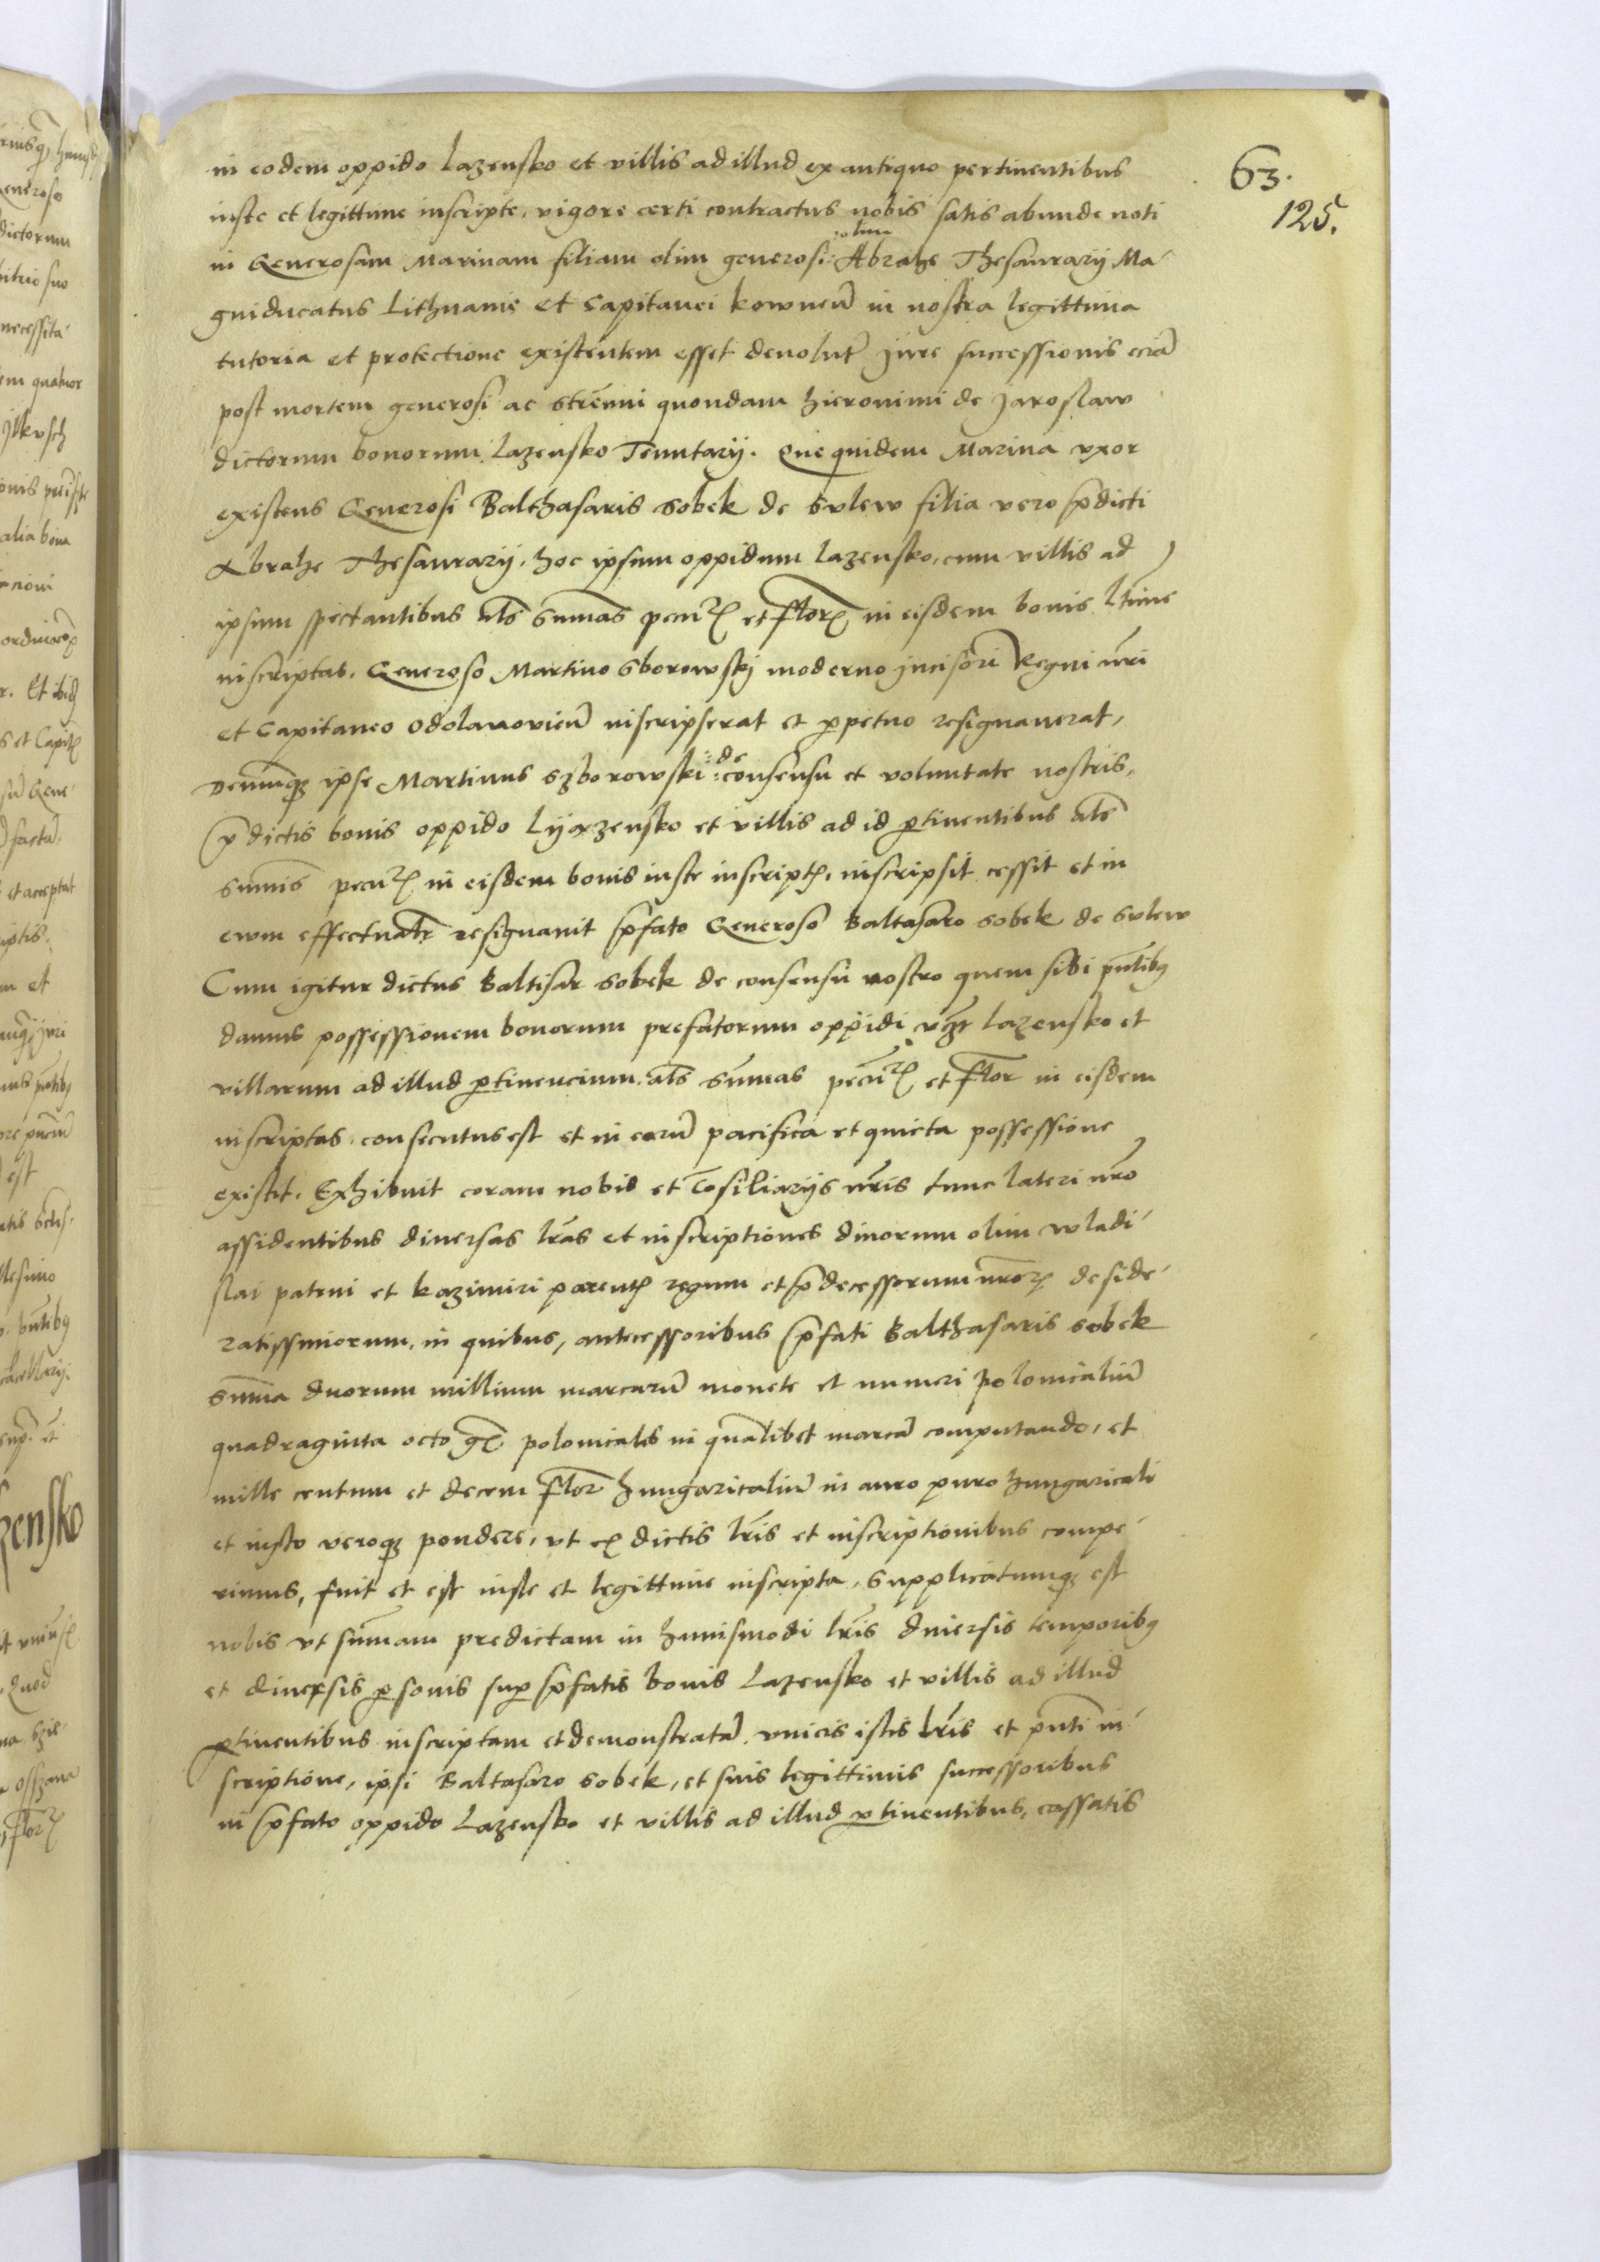 63.
125.
in eodem oppido Lazensko et villis ad illud ex antiquo pertinentibus
iuste et legittime inscripte, vigore certi contractus nobis satis abunde noti
in Generosam Marinam filiam olim generosi olim Abrahe Thesaurarij Ma-
gniducatus Lithuanie et Capitanei Kowneñ in nostra legittima
tutoria et protectione existentem esset deuolut̃ Jure successionis eciã
post mortem generosi ac strẽnui quondam Hieronimi de Jaroslaw
dictorum bonorum Lazensko Tenutarij. Que quidem Marina vxor
existens Generosi Balthasaris Sobek de Sulew filia vero p̃dicti
Abrahe Thesaurarij, hoc ipsum oppidum Lazensko, cum villis ad
ipsum spectantibus al̃s sum̃as pecur̃ et flor̃ in eisdem bonis l̃time
inscriptas, Generoso Martino Sborowskj moderno Jncisori Regni nr̃i
et Capitaneo Odolanouieñ inscripserat et ꝑpetuo resignauerat,
denumqꝫ ipse Martinus Szborowski de consensu et voluntate nostris,
p̃dictis bonis oppido Lyazensko et villis ad id ꝑtinentibus al̃s
sum̃is pecur̃ in eisdem bonis iuste inscript̃, inscripsit cessit et in
ewm effectualr̃ resignauit p̃fato Generoso Baltasaro Sobek de Sulew
Cum igitur dictus Baltisar Sobek de consensu nostro quem sibi pñtibꝫ
damus possessionem bonorum prefatorum oppidi vꝫt Lazensko et
villarum ad illud ꝑtinencium, al̃s sum̃as pecur̃ et flor̃ in eisdem
inscriptas, consecutus est et in earũ pacifica et quieta possessione
existit. Exhibuit coram nobis et Cõsiliarijs nr̃is tunc lateri nr̃o
assidentibus diuersas lr̃as et inscriptiones diuorum olim Wladi-
slai patrui et Kazimiri parent̃ regum et p̃decessorum nr̃or̃ deside-
ratissimorum, in quibus, antecessoribus p̃fati Balthasaris Sobek
sum̃a duorum millium marcarũ monete et numeri Polonicaliũ
quadraginta octo gr̃ polonicales in quamlibet marcã computando, et
mille centum et decem flor̃ Hungaricaliũ in auro puro Hungaricali
et iusto veroqꝫ pondere, vt ex dictis lr̃is et inscriptionibus compe-
rimus, fuit et est iuste et legittime inscripta, supplicatumqꝫ est
nobis vt sum̃am predictam in huiusmodi lr̃is diuersis temporibꝫ
et diuersis ꝑsonis suꝑ p̃fatis bonis Lazensko et villis ad illud
ꝑtinentibus inscriptam et demonstratã, vnicis istis lr̃is et pñti in-
scriptione, ipsi Baltasaro Sobek, et suis legittimis successoribus
in p̃fato oppido Lazensko et villis ad illud ꝑtinentibus, cassatis